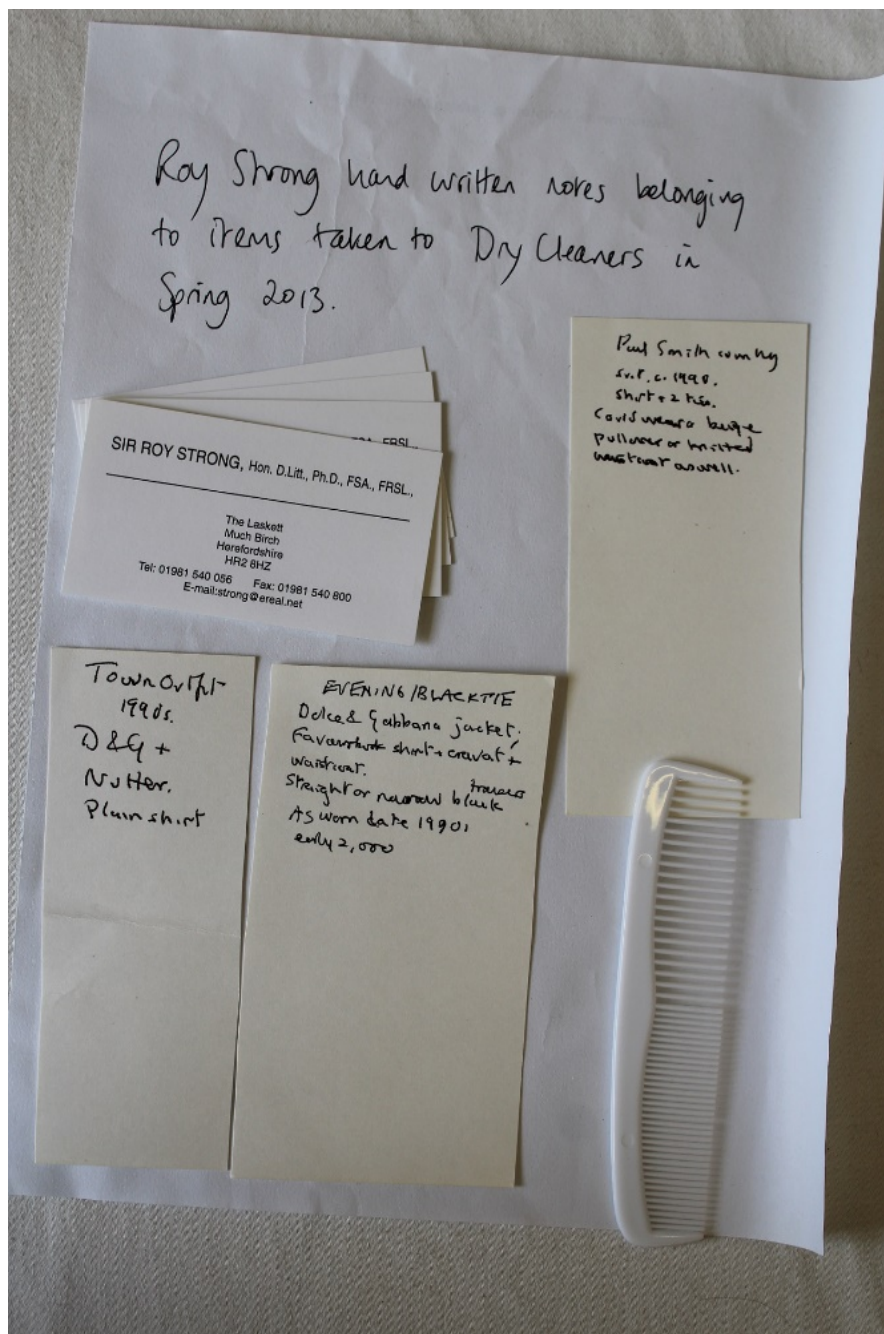 Roy Strong hand written notes belonging
to items taken to Dry Cleaners in
Spring 2013.
Paul Smith country
suit. c. 1990.
shirt + 2 ties.
Could wear a beige
pullover or knitted
waistcoat as well.
FSA., FRSL.,
SIR ROY STRONG, Hon. D.Litt., Ph.D., FSA., FRSL.,
The Laskett
Much Birch
Herefordshire
HR2 8HZ
Tel: 01981 540 056 Fax: 01981 540 800
E-mail:strong@ereal.net
Town Outfit
1990s.
D&G +
Nutter.
Plain shirt
EVENING/BLACKTIE
Dolce & Gabbana jacket.
shirt + cravat +
waistcoat.
trousers
Straight or narrow black
As worn date 1990s
early 2,000